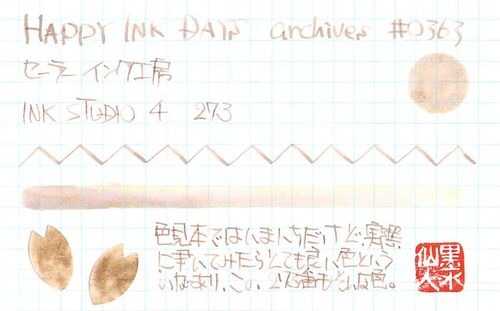 HAPPY INK DAYS archives #0363
セーラーインク工房
INK STUDIO 4 273
色見本ではいまいちだけど、実際
に書いてみたらとても良い色という
のはあり、この、273番もそんな色。
墨水
仙人